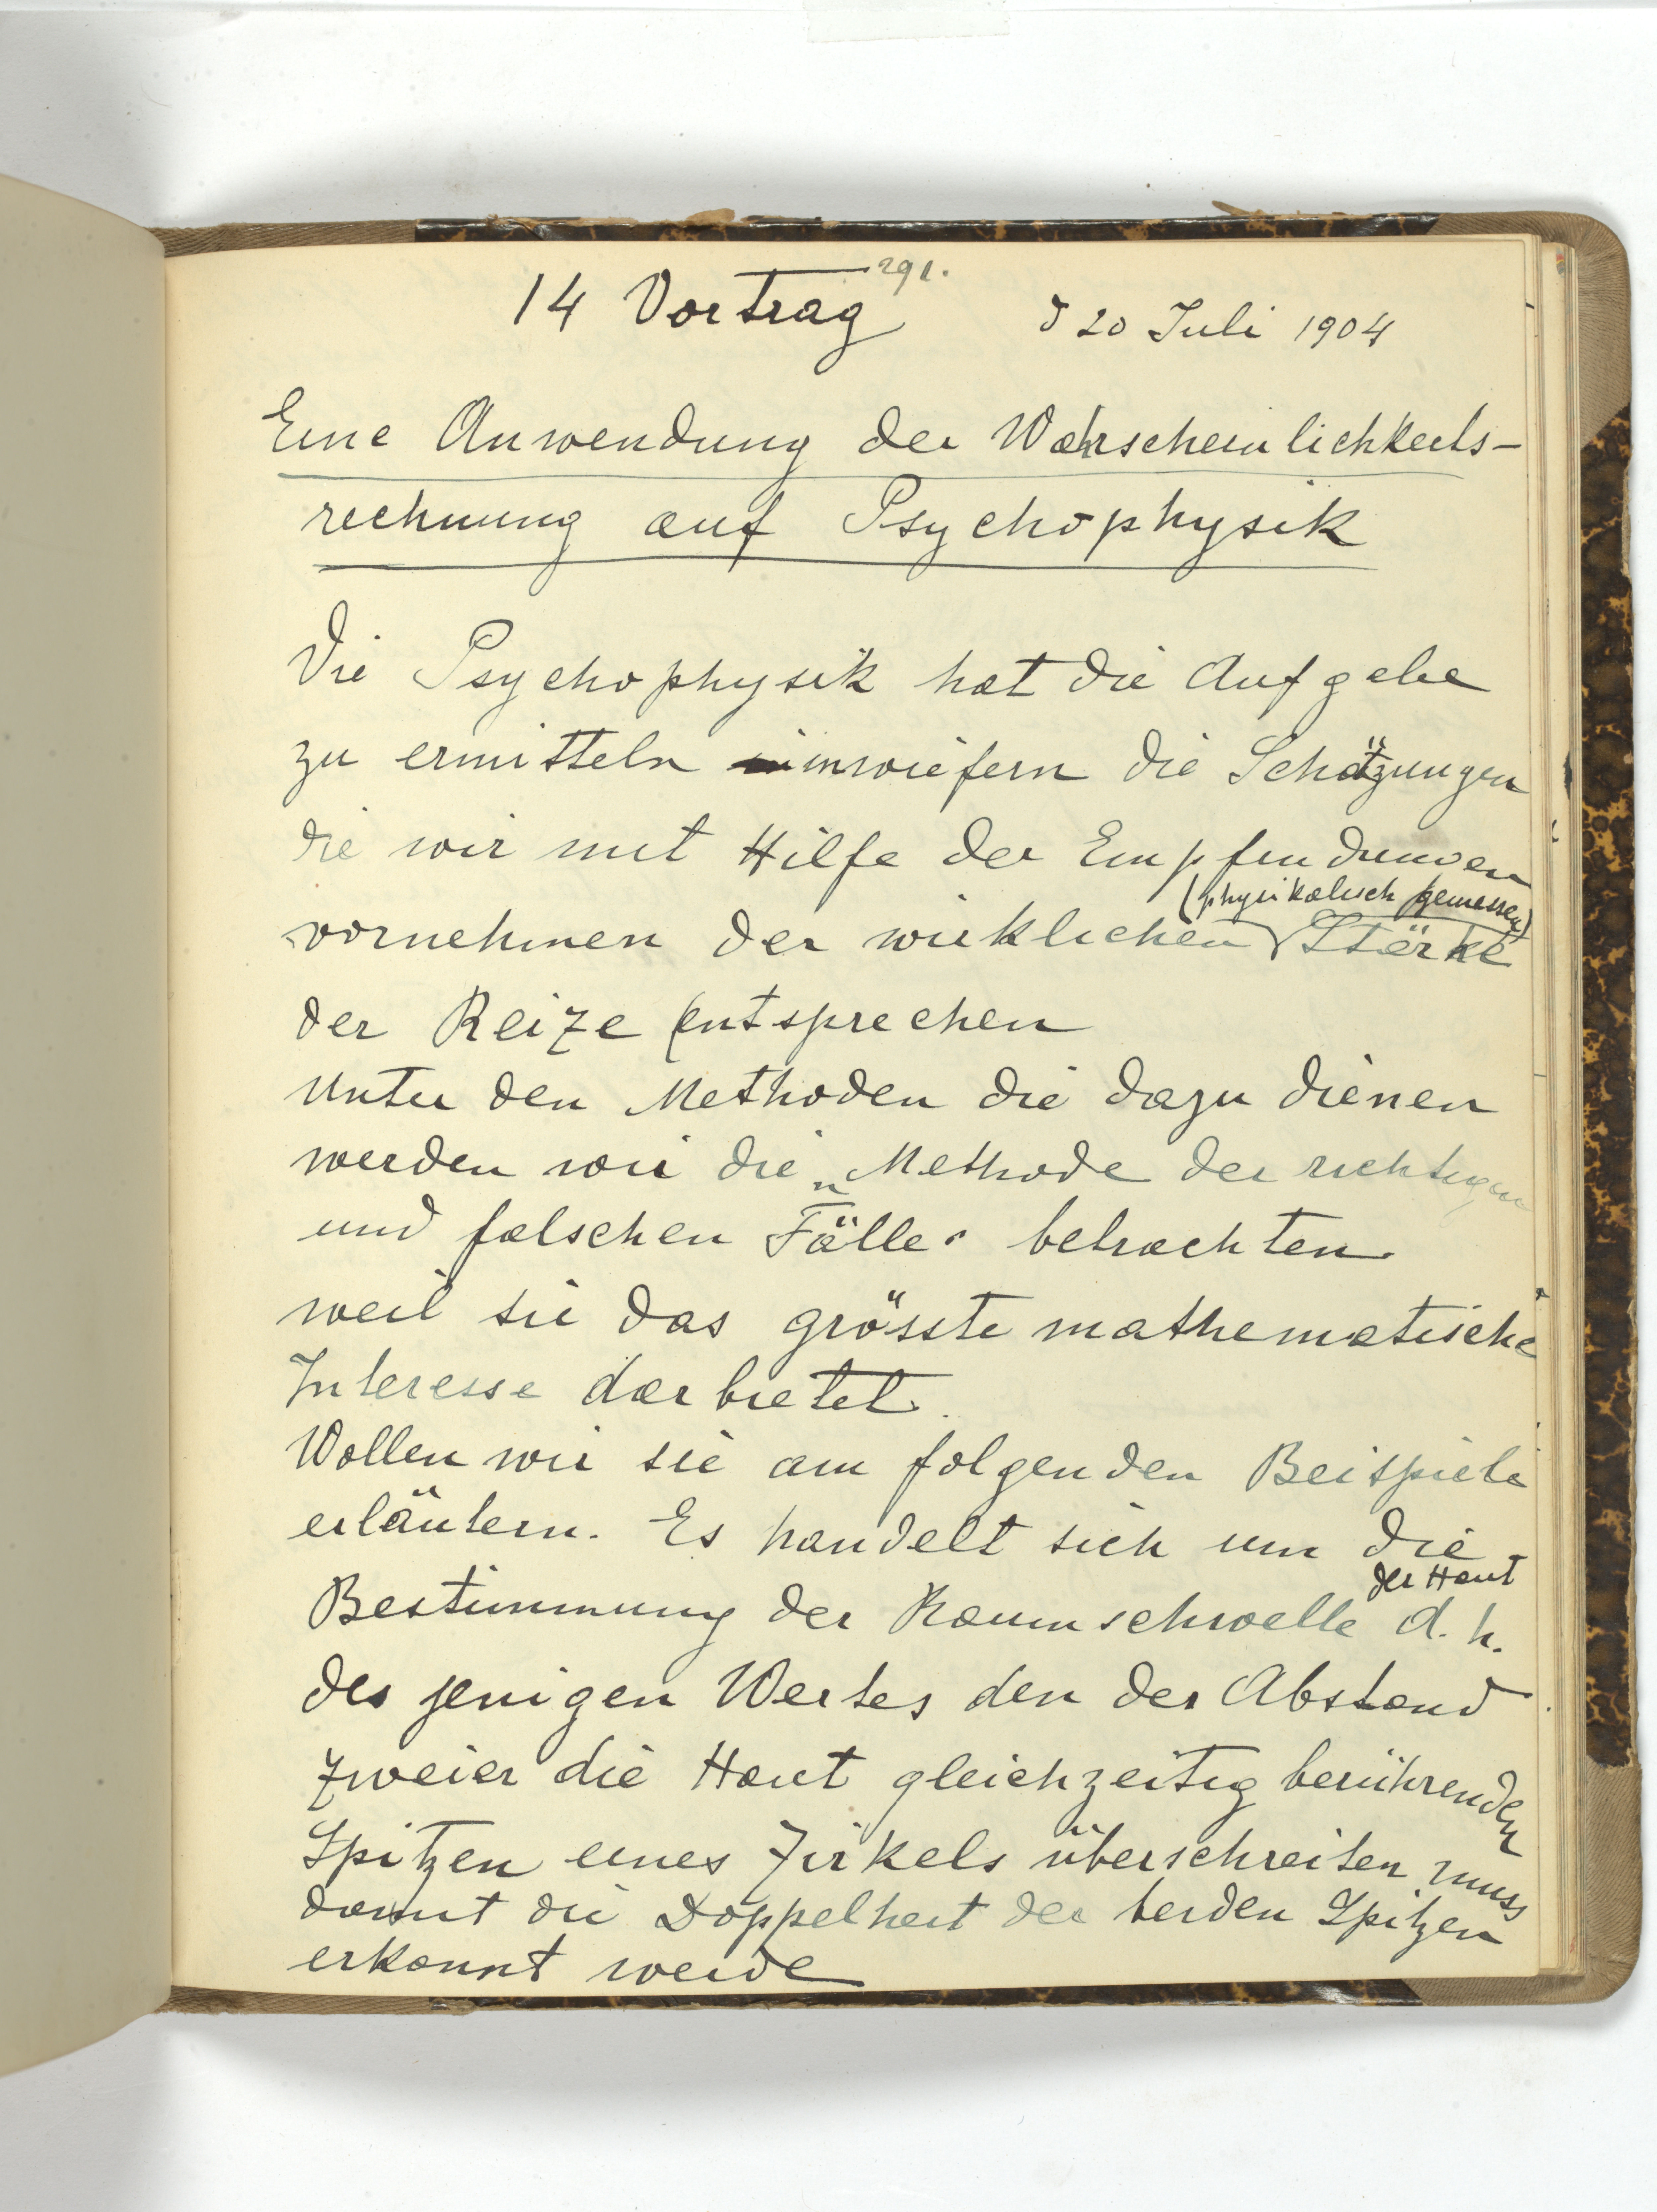 291.
14 Vortrag
d 20 Juli 1904
Eine Anwendung der Wahrscheinlichkeits-
rechnung auf Psychophysik
Die Psychophysik hat die Aufgabe
zu ermitteln inwiefern die Schätzungen
die wir mit Hilfe der Empfindungen
(physikalisch gemessen)
vornehmen der wirklichen Stärke
der Reize entsprechen
Unter den Methoden die dazu dienen
werden wir die „Methode der richtigen
und falschen Fälle" betrachten
weil sie das grösste mathematische
Interesse darbietet.
Wollen wir sie am folgenden Beispiele
erläutern. Es handelt sich um die
der Haut
Bestimmung der Raumschwelle d. h.
des jenigen Wertes den der Abstand
zweier die Haut gleichzeitig berührenden
Spitzen eines Zirkels überschreiten muss
damit die Doppelheit der beiden Spitzen
erkannt werde